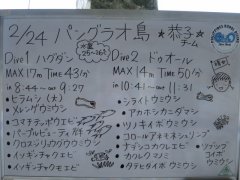 2/24 パングラオ島 ★恭子★チーム
水温 25~26℃
Dive 1 ハグダン
MAX 17m Time 43分
in 8:44 ~ out 9:27
ヒラムシ (大)
メレンゲウミウシ
コマチテッポウエビ
パープルビューティ
クロスジリュウグウウミウシ
イッポンギャクエビ
イッポンギャクエビ
Dive 2 ドゥオール
MAX 14m Time 50分
in 10:41 ~ out 11:31
シライトウミウシ
アカホシカニダマシ
ツノキイボウミウシ
コロールアネモネシュリンプ
ナデシコカクレエビ
カクレクマノミ
タテヒダイボウミウシ
ソウシジコイボウミウシ